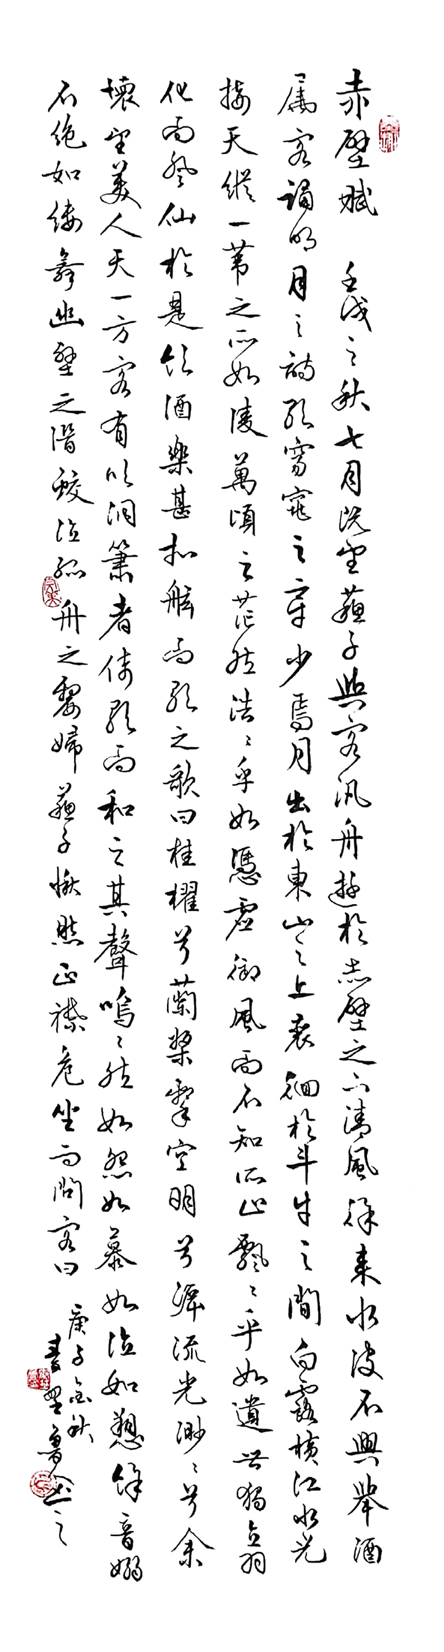 赤壁賦 壬戌之秋七月既望蘇子與客汎舟遊於赤壁之下清風徐來水波不興舉酒
屬客誦明月之詩歌窈窕之章少焉月出於東山之上裵徊於斗牛之間白露橫江水光
接天縱一葦之所如陵萬頃之茫然浩〻乎如憑虛御風而不知所止飄〻乎如遺世獨立羽
化而登仙於是飲酒樂甚扣舷而歌之歌曰桂櫂兮蘭槳擊空明兮泝流光渺〻兮余
懷望美人天一方客有吹洞簫者倚歌而和之其聲嗚〻然如怨如慕如泣如愬餘音嫋
不絕如縷舞幽壑之潛蛟泣孤舟之嫠婦蘇子愀然正襟危坐而問客曰
庚子金秋